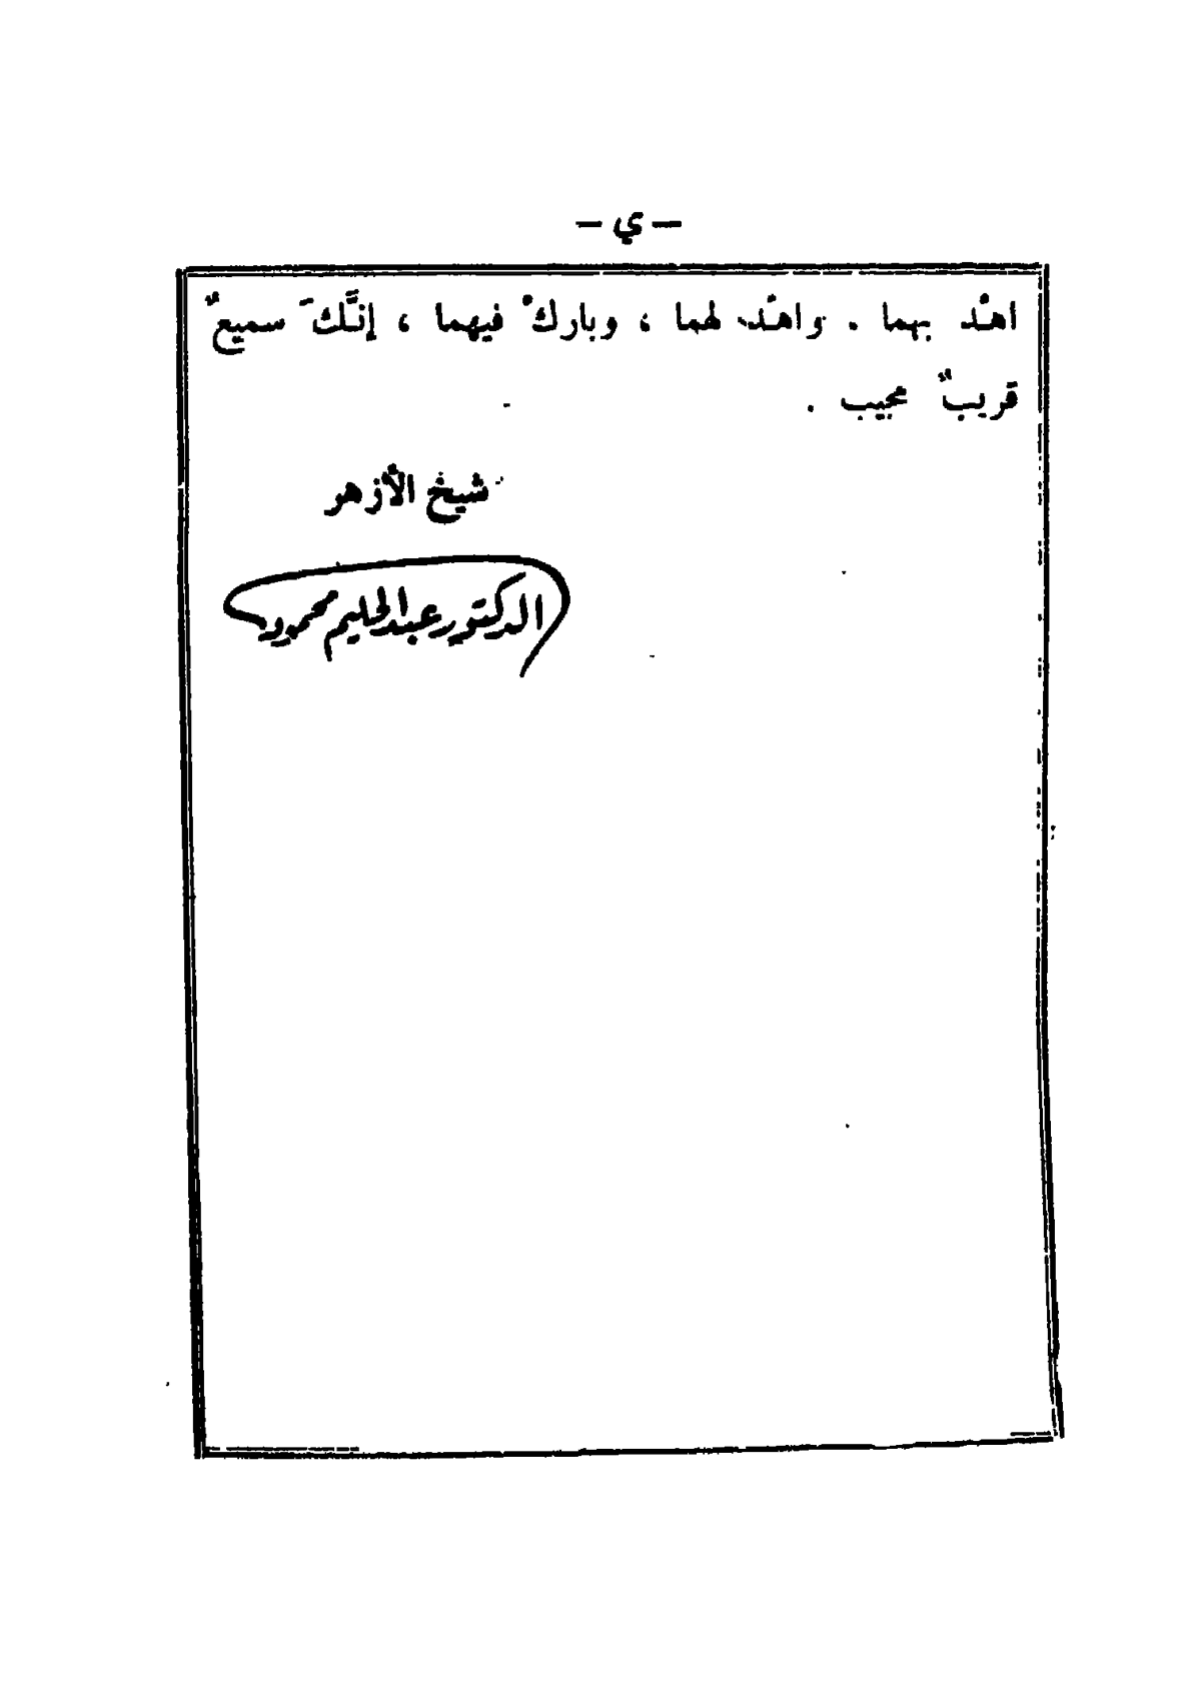 – ي –
اهْد بهما . واهْد لهما ، وباركْ فيهما ، إنَّكَ سميعٌ
قريبٌ مجيب .
شيخ الأزهر
الدكتور عبد الحليم محمود